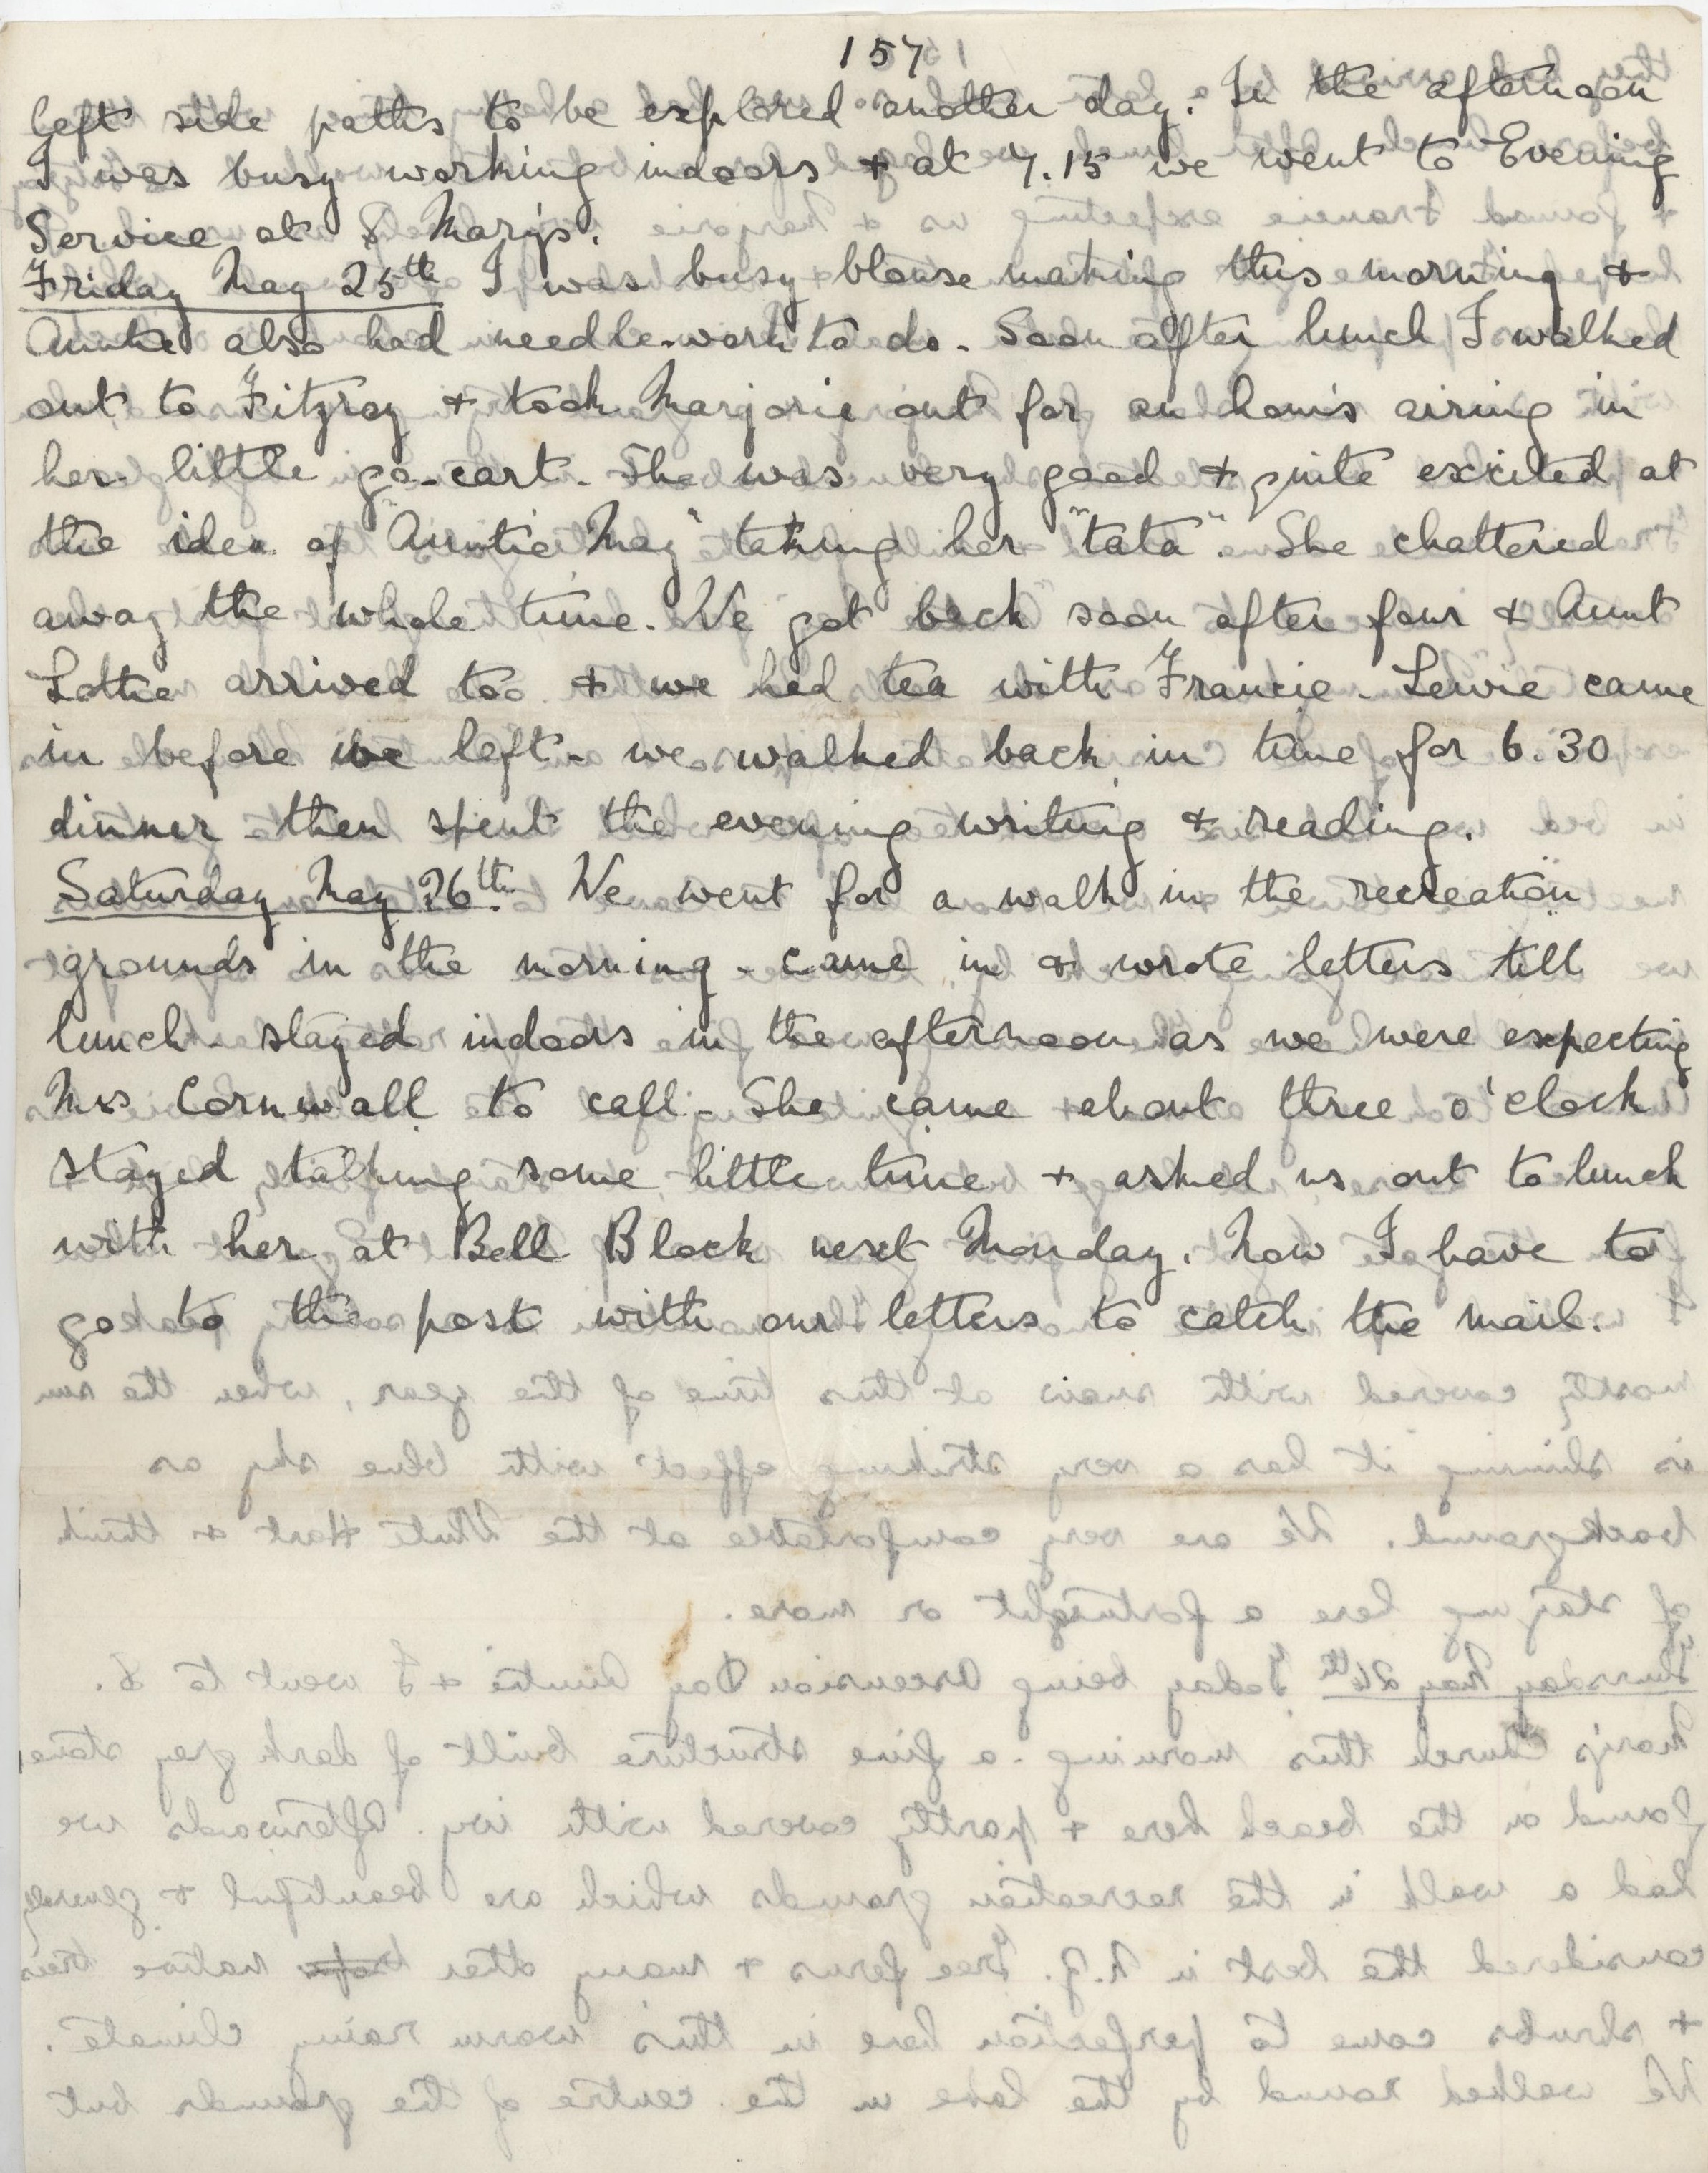 157
left side paths to be explored another day. In the afternoon
I was busy working indoors + at 7.15 we went to Evening
Service at S. Mary's.
Friday May 25th I was busy blouse making this morning +
Auntie also had needle-work to do. Soon after lunch I walked
out to Fitzroy + took Marjorie out for an hour's airing in
her little go-cart. She was very good + quite excited at
the idea of "Auntie May" taking her "tata". She chattered
away the whole time. We got back soon after four + Aunt
Lottie arrived too + we had tea with Francie. Lewie came
in before we left - we walked back in time for 6.30
dinner then spent the evening writing + reading.
Saturday May 26th. We went for a walk in the recreation
grounds in the morning - came in + wrote letters till
lunch - stayed indoors in the afternoon as we were expecting
Mrs Cornwall to call - She came about three o'clock
stayed talking some little time + asked us out to lunch
with her at Bell Block next Monday. Now I have to
go to the post with our letters to catch the mail.